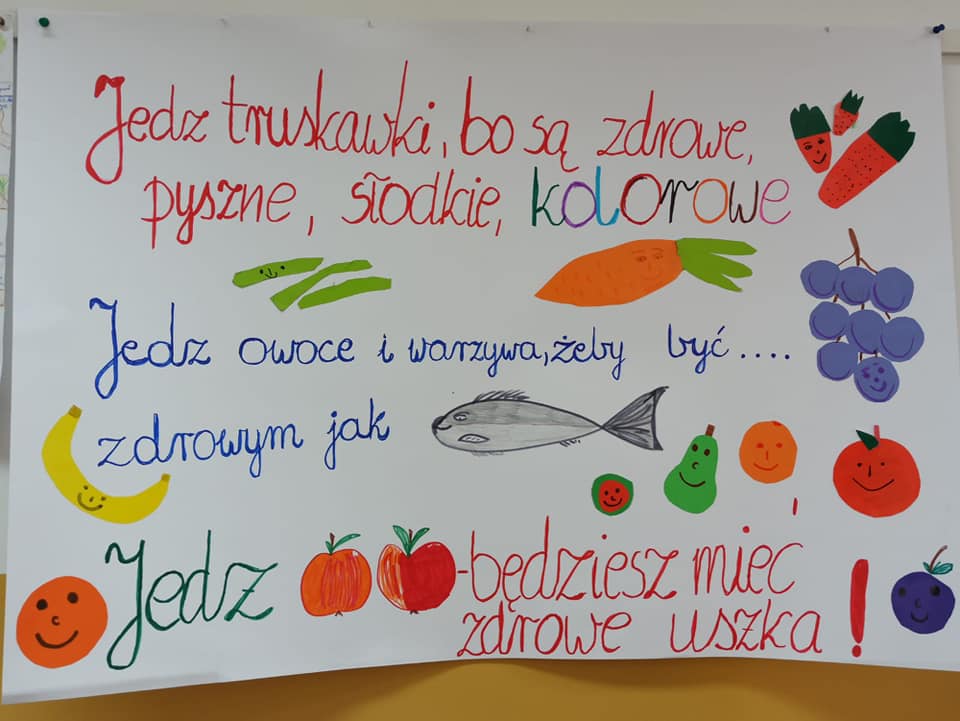 Jedz truskawki, bo są zdrowe,
pyszne, słodkie, kolorowe
Jedz owoce i warzywa, żeby być....
zdrowym jak
Jedz -będziesz mieć
zdrowe uszka!